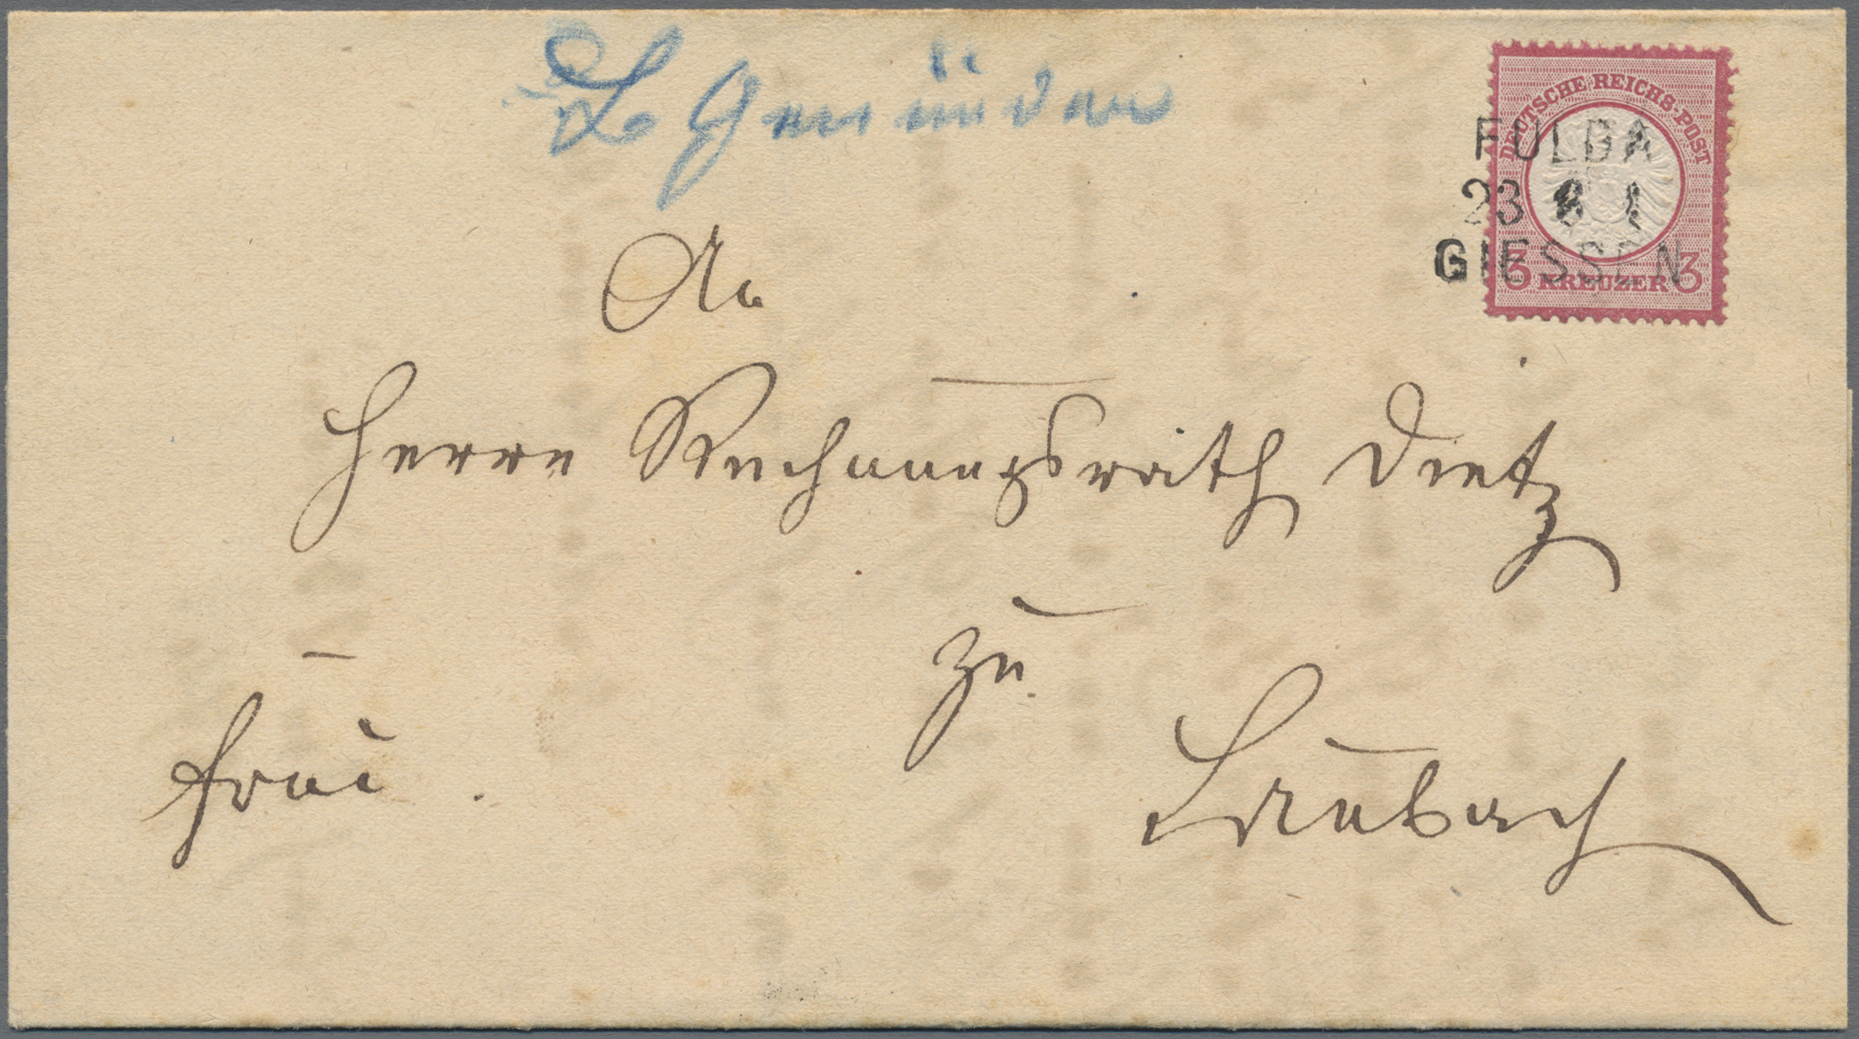 Gemünden
DEUTSCHE REICHS-POST
FULDA
23 8 1
GIESSEN
3 KREUZER 3
An
Herrn Rechnungsrath Dietz
zu
frei.
Laubach